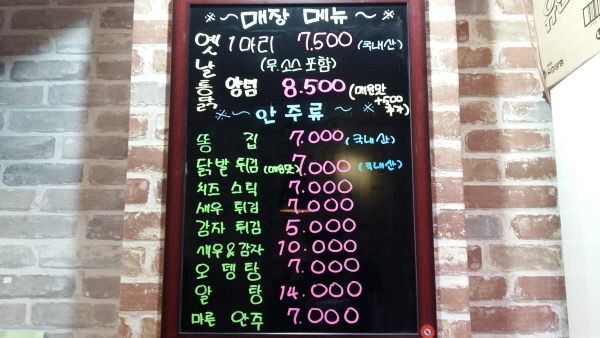 ※~매장 메뉴~※
옛날통닭 1마리 7,500 (국내산)
(무.소스 포함)
양념 8.500 (매운맛 +500 추가)
※~ 안주류 ~※
똥집 7.000 (국내산)
닭발 튀김 (매운맛) 7.000 (국내산)
치즈 스틱 7.000
새우 튀김 7.000
감자 튀김 5.000
새우&감자 10.000
오뎅탕 7.000
알탕 14.000
마른 안주 7.000